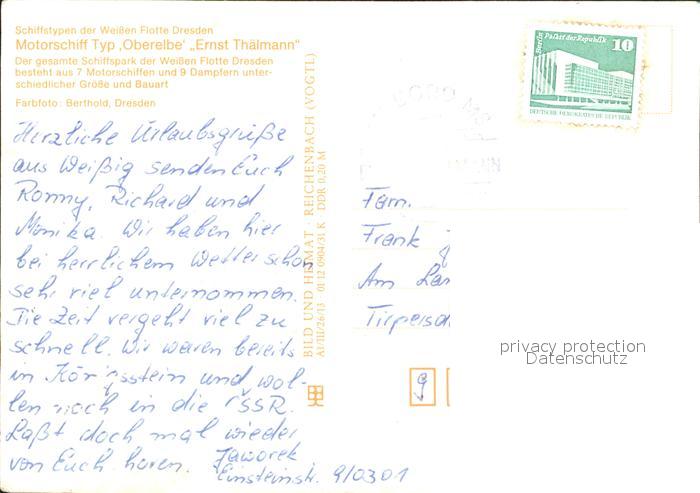 Schiffstypen der Weißen Flotte Dresden
Motorschiff Typ ‚Oberelbe‘ „Ernst Thälmann“
Der gesamte Schiffspark der Weißen Flotte Dresden
besteht aus 7 Motorschiffen und 9 Dampfern unter-
schiedlicher Größe und Bauart
Farbfoto: Berthold, Dresden
Herzliche Urlaubsgrüße
aus Weißig senden Euch
Ronny, Richard und
Monika. Wir haben hier
bei herrlichem Wetter schon
sehr viel unternommen.
Die Zeit vergeht viel zu
schnell. Wir waren bereits
in Königsstein und wol-
len noch in die ČSSR.
Laßt doch mal wieder
von Euch hören. Jaworek
Einsteinstr. 9/0301
BILD UND HEIMAT · REICHENBACH (VOGTL)
A1/III/26/13 01 12 0904/31 K DDR 0,20 M
Berlin Palast der Republik 10
DEUTSCHE DEMOKRATISCHE REPUBLIK
Fam.
Frank
Am
Tirpersd
9
privacy protection
Datenschutz